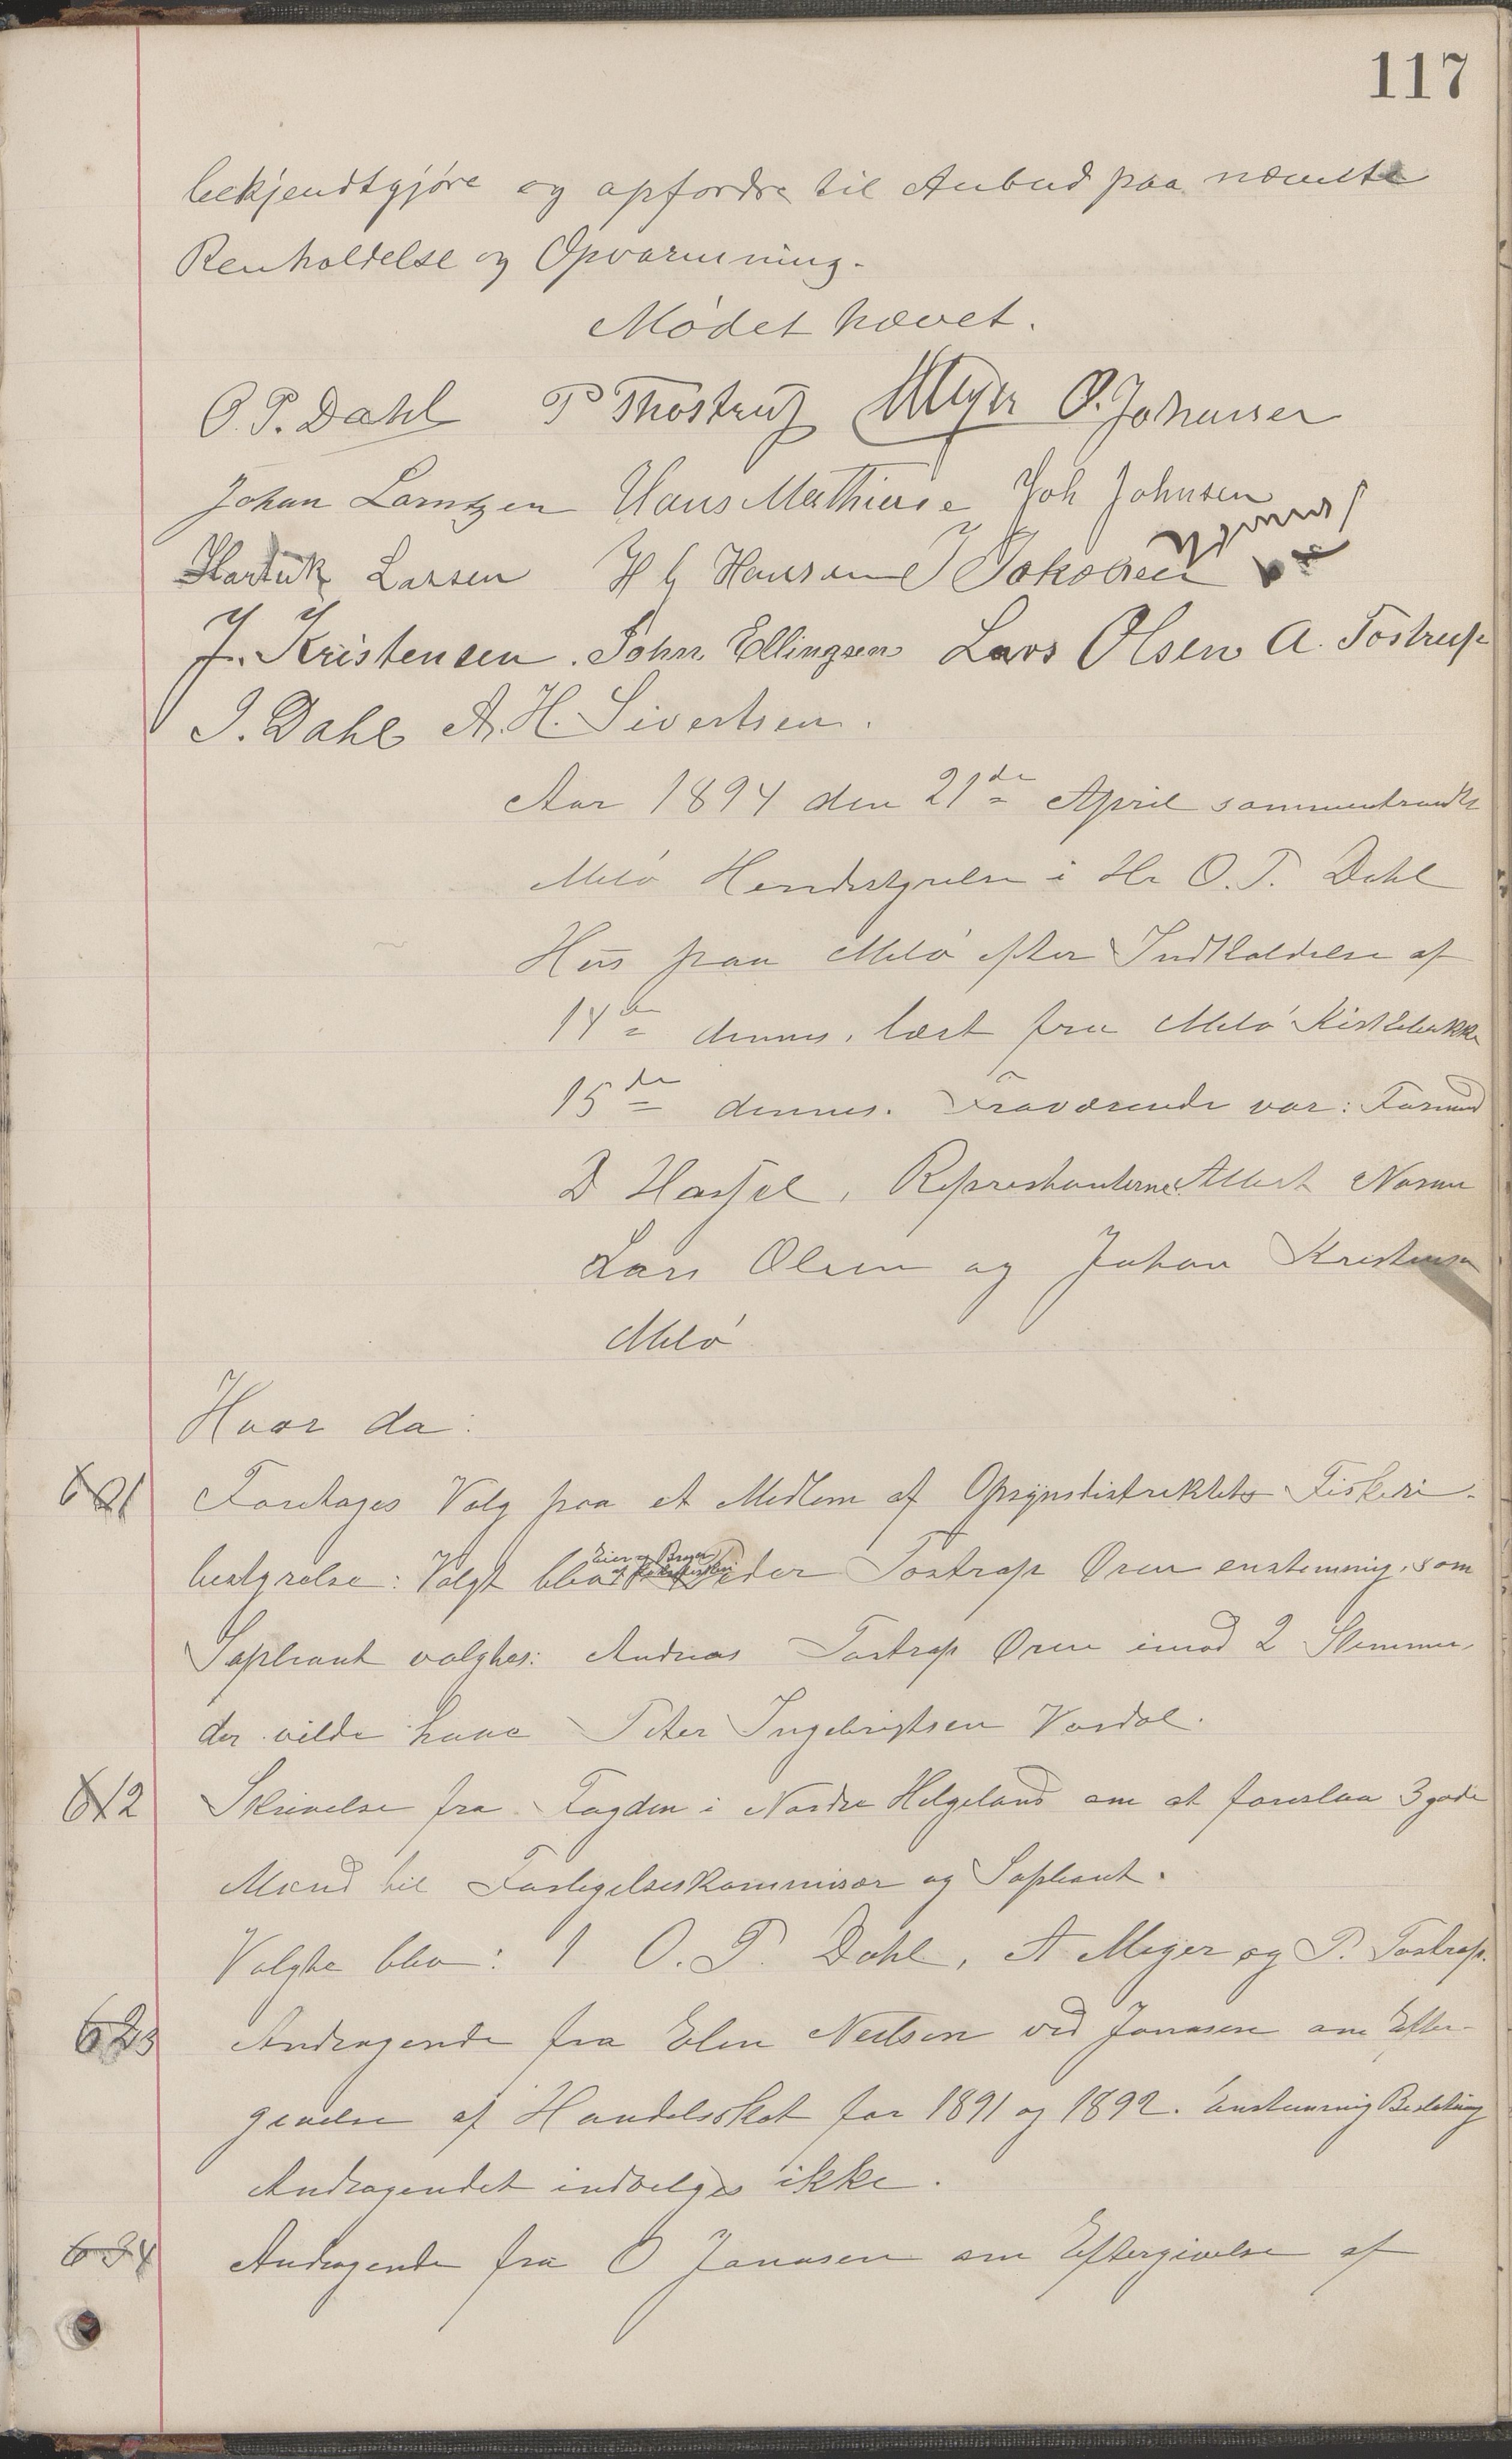 117
bekjendtgjöre og opfordre til Anbud paa nævnte
Renholdelse og Opvarmning.
Mödet hævet.
O. P. Dahl P Thostrup Meyer O. Johansen
Johan Lorntzen Hans Mathiese Joh Johnsen
Hartvik Lassen H C Hansen J Jakobsen
J. Kristensen. John Ellingsen Lars Olsen A. Tostrup
I. Dahl A. H. Sivertsen.
Aar 1894 den 21de April sammentraadte
Melö Herredsstyrelse i Hr O. P. Dahl
Hus paa Melö efter Indkaldelse af
14de dennes, læst fra Melö Kirkebakke
15de dennes. Fraværende var: Formand
D Hasfel, Repræsentanterne Albert
Lars Olsen og Johan Kristensen
Melö
Hvor da:
1 Foretages Valg paa et Medlem af Opsynsdistriktets Fiskeri-
bestyrelse: Valgt blev Eier og Bruger af Peder Tostrup Ören enstemmig, som
Supleant valgtes: Andreas Tostrup Ören imod 2 Stemmer,
der vilde have Peter Ingebrigtsen Vardal.
2 Skrivelse fra Fogden i Nordre Helgeland om at foreslaa 3 gode
Mænd til Forligelseskommisær og Supleant.
Valgte blev: 1 O. P. Dahl, A Meyer og P. Tostrup.
3 Andragende fra Elen Neilsen ved Jonasen om Efter-
givelse af Handelsskat for 1891 og 1892. Enstemmig Beslutning
Andragendet indvilges ikke.
4 Andragende fra O Jonasen om Eftergivelse af